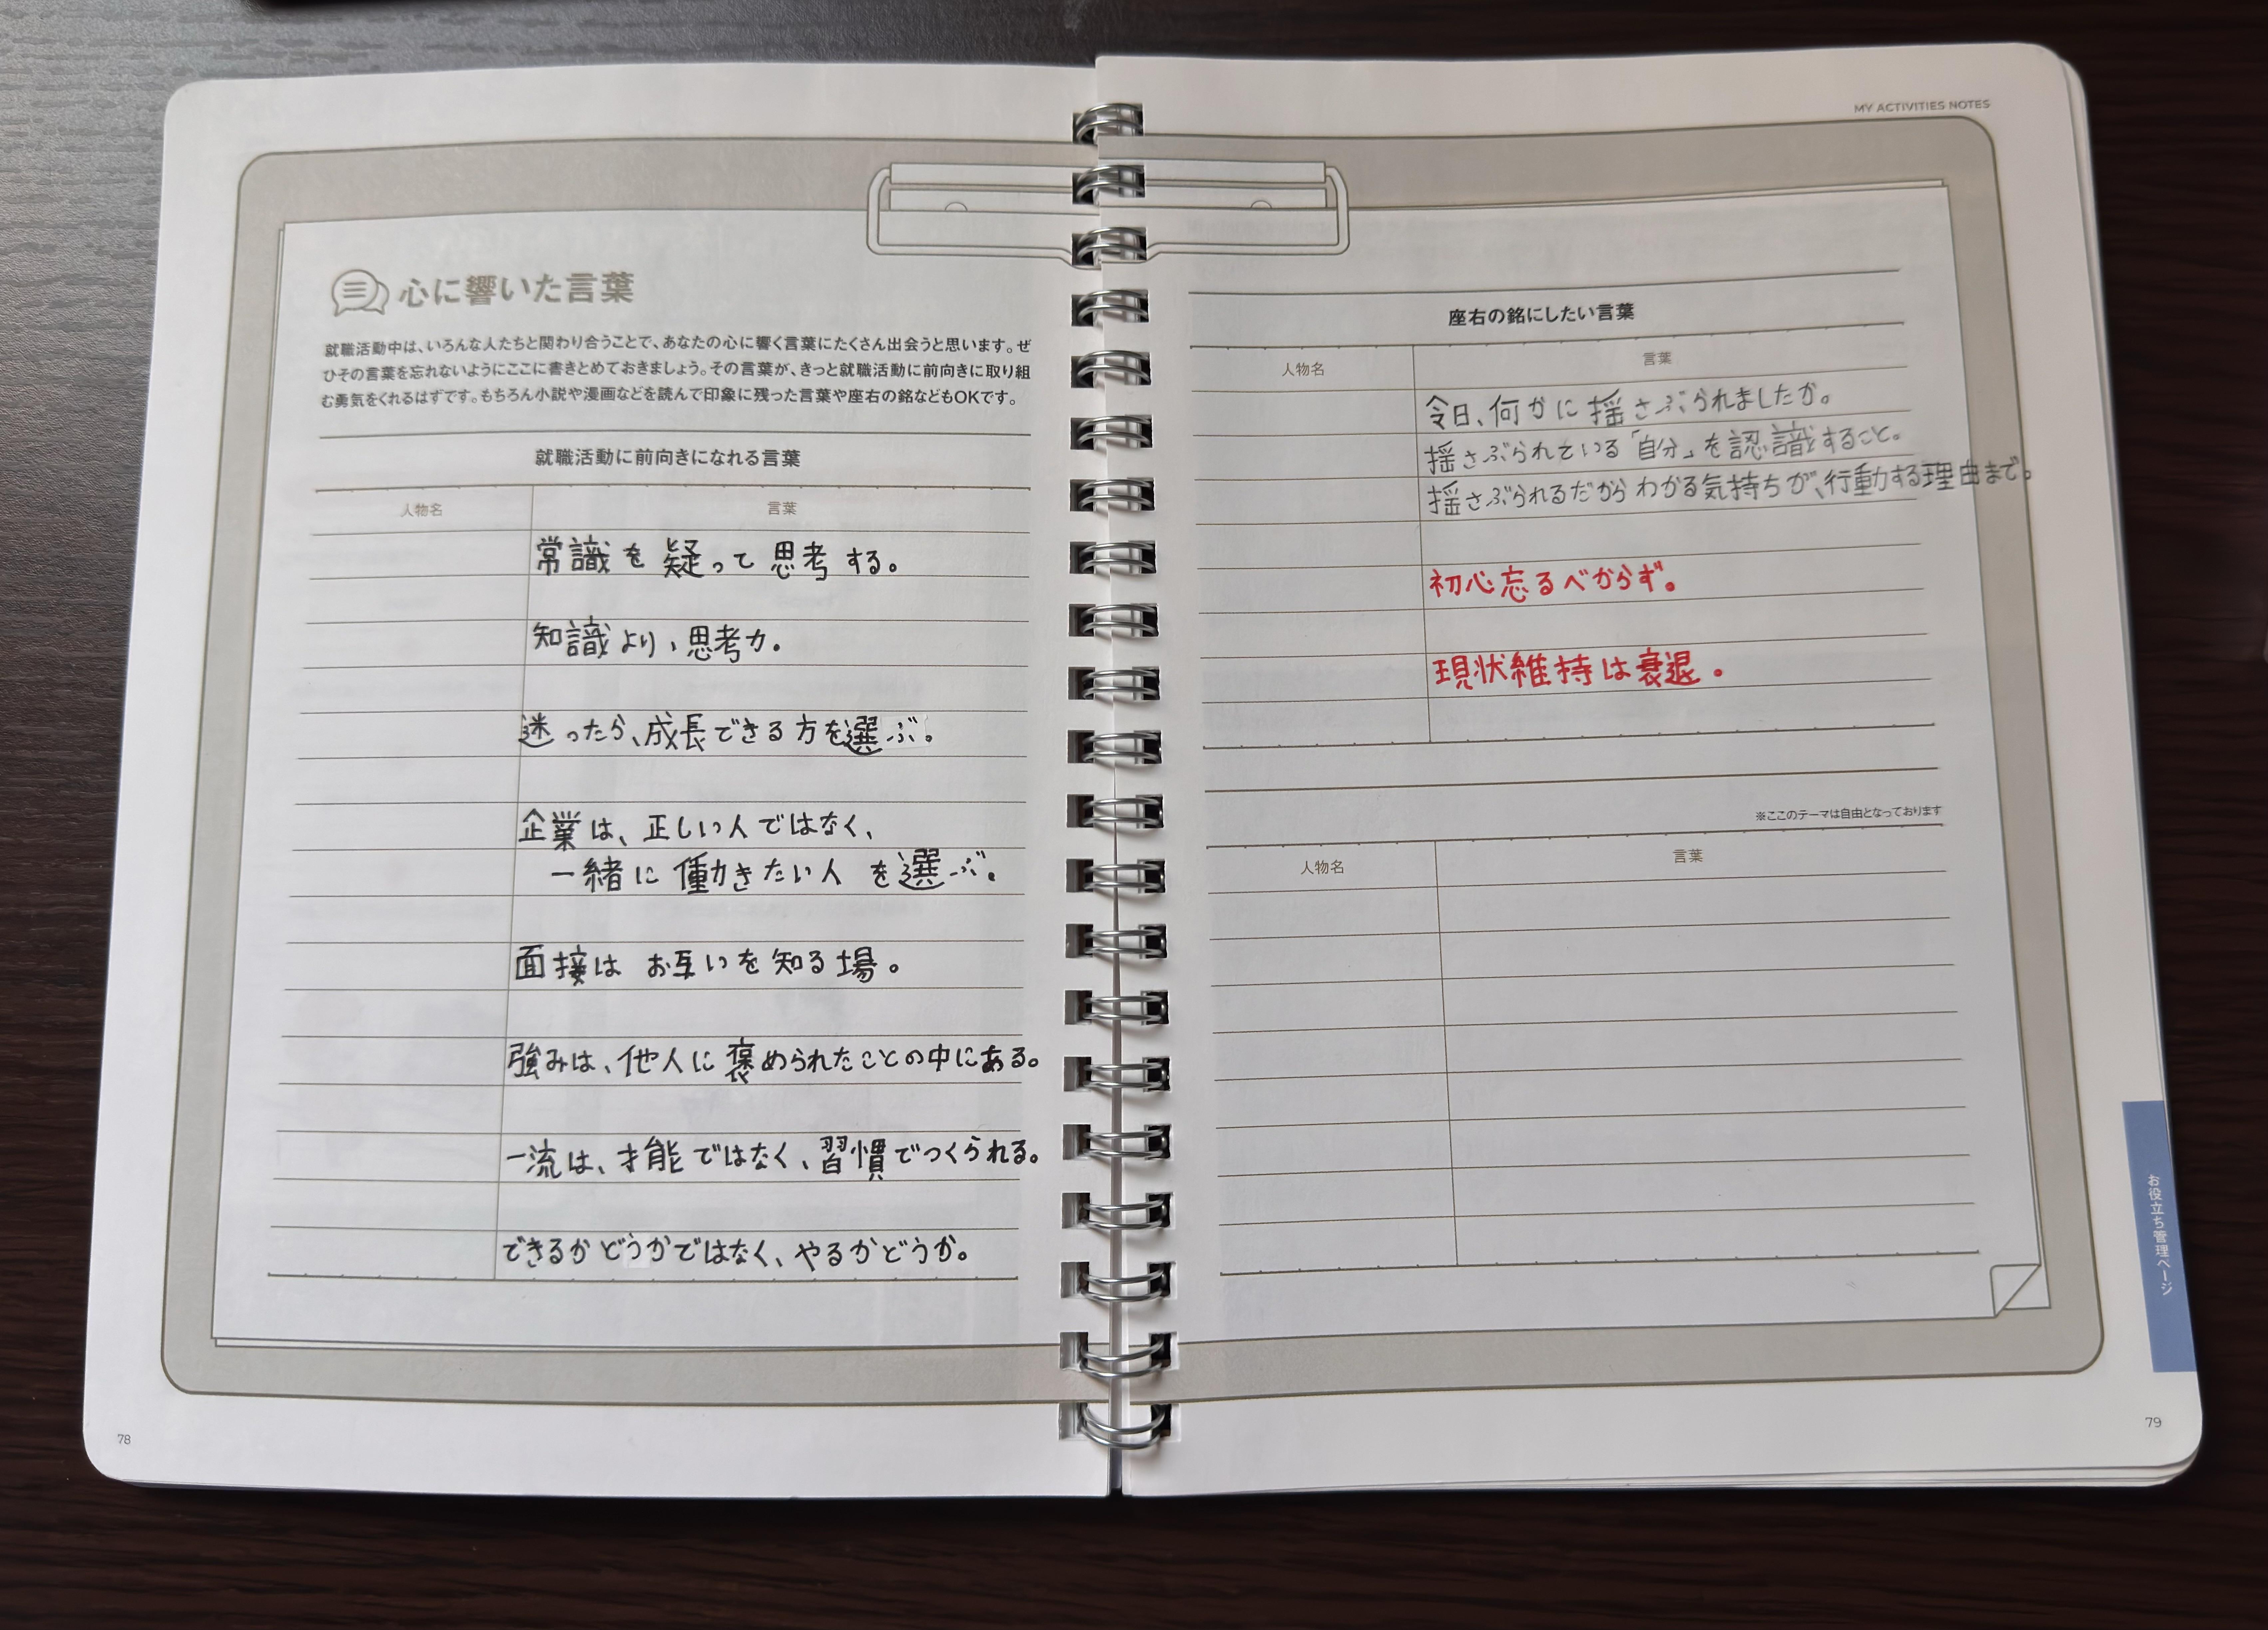 心に響いた言葉
就職活動中は、いろんな人たちと関わり合うことで、あなたの心に響く言葉にたくさん出会うと思います。ぜ
ひその言葉を忘れないようにここに書きとめておきましょう。その言葉が、きっと就職活動に前向きに取り組
む勇気をくれるはずです。もちろん小説や漫画などを読んで印象に残った言葉や座右の銘などもOKです。
就職活動に前向きになれる言葉
人物名 言葉
常識を疑って思考する。
知識より、思考力。
迷ったら、成長できる方を選ぶ。
企業は、正しい人ではなく、
一緒に働きたい人を選ぶ。
面接はお互いを知る場。
強みは、他人に褒められたことの中にある。
一流は、才能ではなく、習慣でつくられる。
できるかどうかではなく、やるかどうか。
78
MY ACTIVITIES NOTES
座右の銘にしたい言葉
人物名 言葉
今日、何かに揺さぶられましたか。
揺さぶられている「自分」を認識すること。
揺さぶられるだからわかる気持ちが、行動する理由まで。
初心忘るべからず。
現状維持は衰退。
※ここのテーマは自由となっております
人物名 言葉
お役立ち管理ページ
79